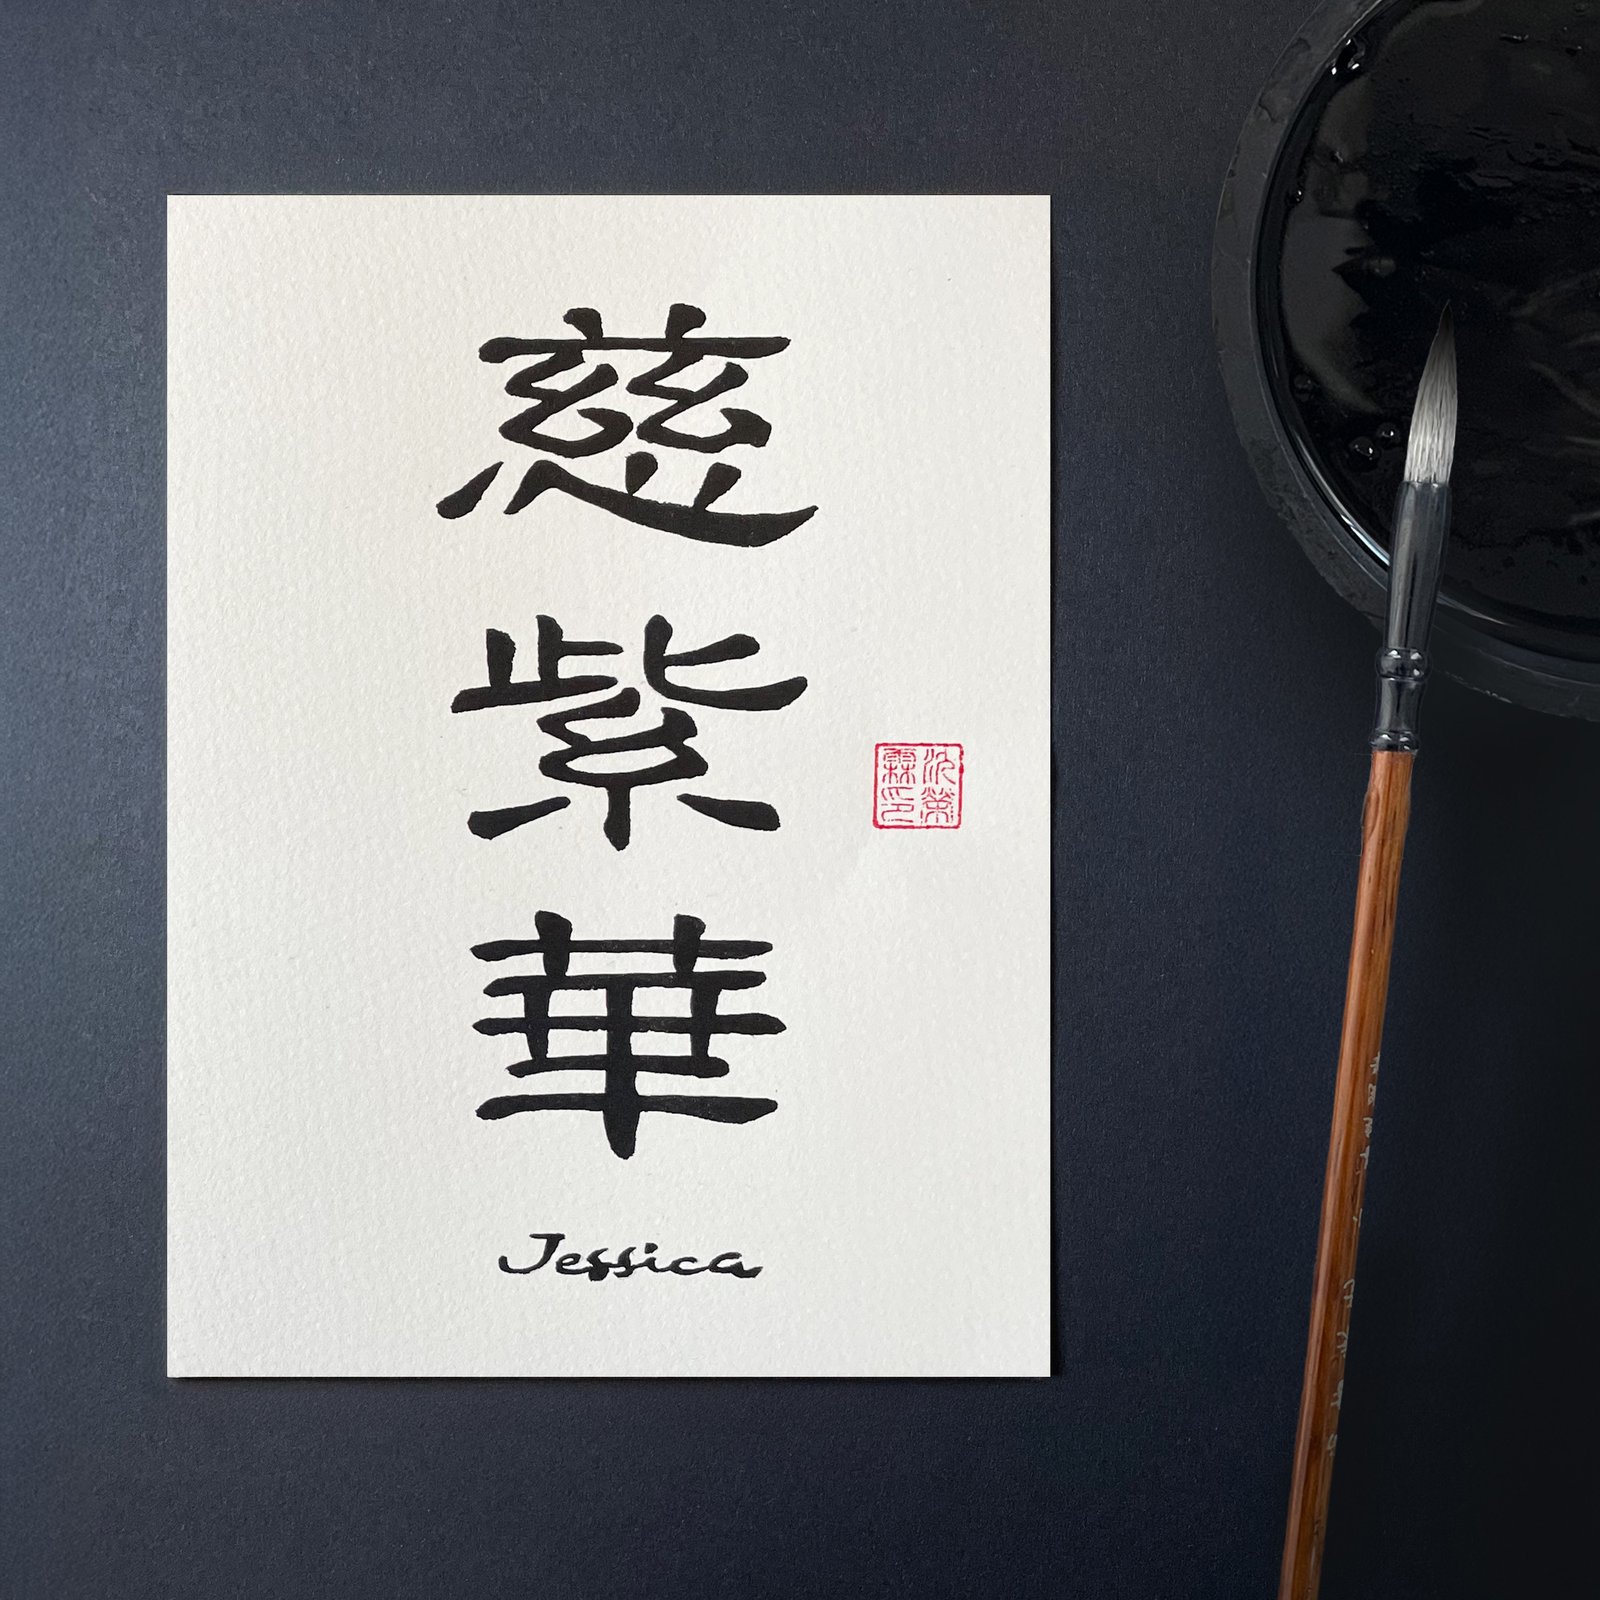 慈
紫
華
Jessica